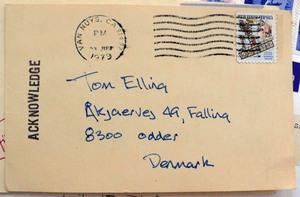 VAN NUYS, CALIF
PM
1973
ACKNOWLEDGE
Tom Elling
Akjaerves 49, Falling
8300 odder
Denmark